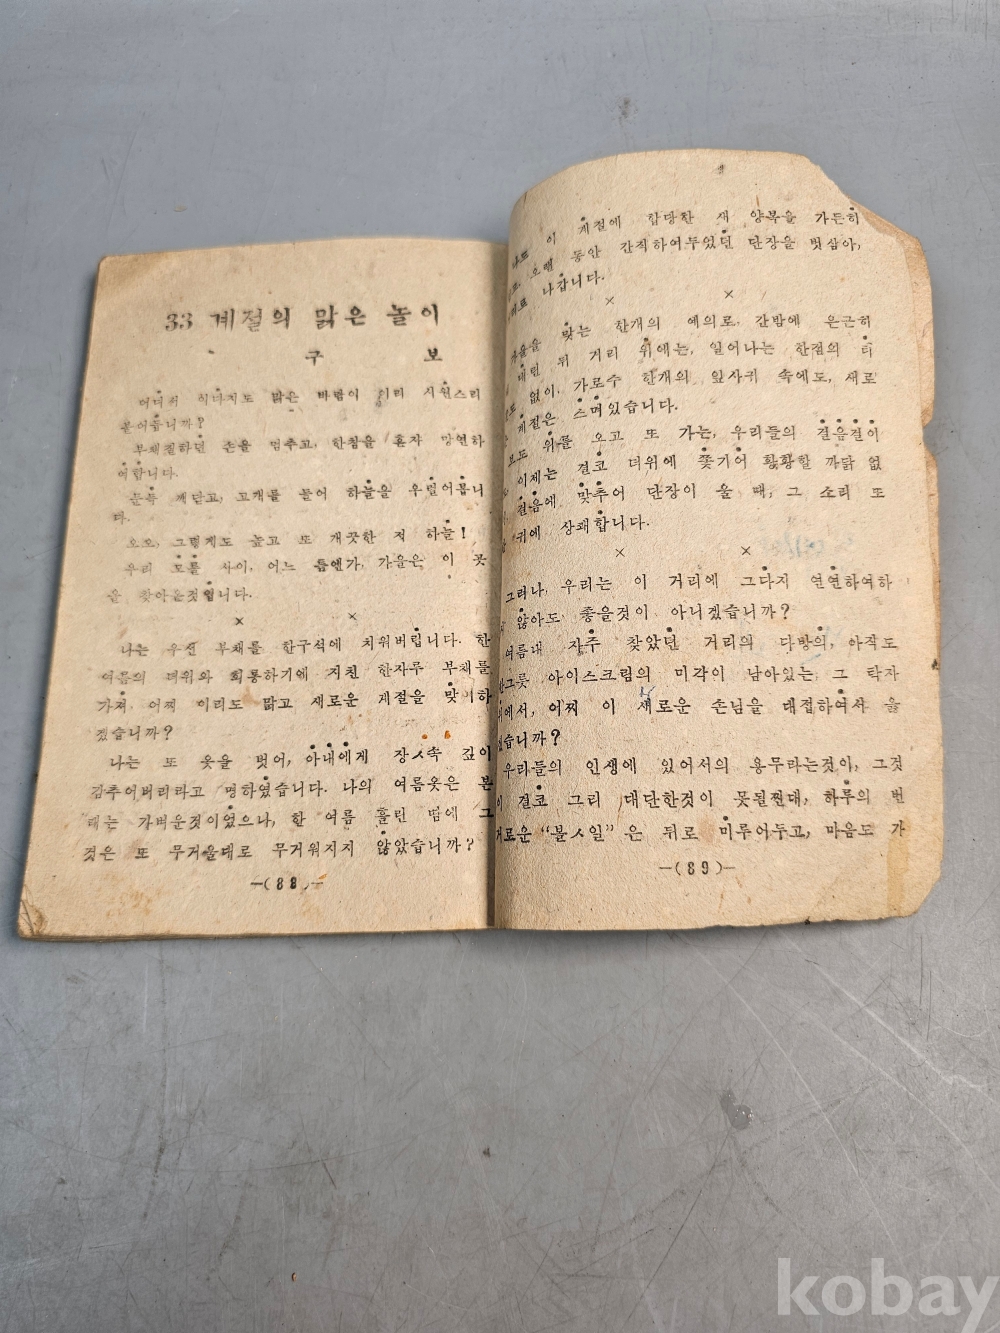 33 계절의 맑은 놀이
구 보
어디서 이다지도 맑은 바람이 이리 시원스리
불어옵니까?
부채질하던 손을 멈추고, 한참을 혼자 망연하
여합니다.
문득 깨닫고, 고개를 들어 하늘을 우럴어봅니
다.
오오, 그렇게도 높고 또 개끗한 저 하늘!
우리 모를 사이, 어느 틈엔가, 가을은 이 곳
을 찾아온것입니다.
× ×
나는 우선 부채를 한구석에 치워버립니다. 한
여름의 더위와 희롱하기에 지친 한자루 부채를
가져 어찌 이리도 맑고 새로운 계절을 맞이하
겠습니까?
나는 또 옷을 벗어, 아내에게 장ㅅ속 깊이
감추어버리라고 명하였습니다. 나의 여름옷은 본
래는 가벼운것이었으나, 한 여름 흘린 땀에 그
것은 또 무거울대로 무거워지지 않았습니까?
—(88)—
이 계절에 합당한 새 양복을 가든히
오랠 동안 간직하여두었던 단장을 벗삼아,
나갑니다.
× ×
가을을 맞는 한개의 예의로, 간밤에 은근히
내린 뒤 거리 위에는, 일어나는 한점의 티
없이, 가로수 한개의 잎사귀 속에도, 새로
계절은 스며있습니다.
보도 위를 오고 또 가는, 우리들의 걸음걸이
이제는 결코 더위에 쫓기어 황황할 까닭 없
걸음에 맞추어 단장이 울 때, 그 소리 또
귀에 상쾌합니다.
× ×
그러나, 우리는 이 거리에 그다지 연연하여하
않아도 좋을것이 아니겠습니까?
여름내 자주 찾았던 거리의 다방의, 아직도
한그릇 아이스크림의 미각이 남아있는 그 탁자
에서, 어찌 이 새로운 손님을 대접하여서 옳
겠습니까?
우리들의 인생에 있어서의 용무라는것이, 그것
이 결코 그리 대단한것이 못될찐대, 하루의 번
거로운 “볼ㅅ일” 은 뒤로 미루어두고, 마음도 가
—(89)—
kobay